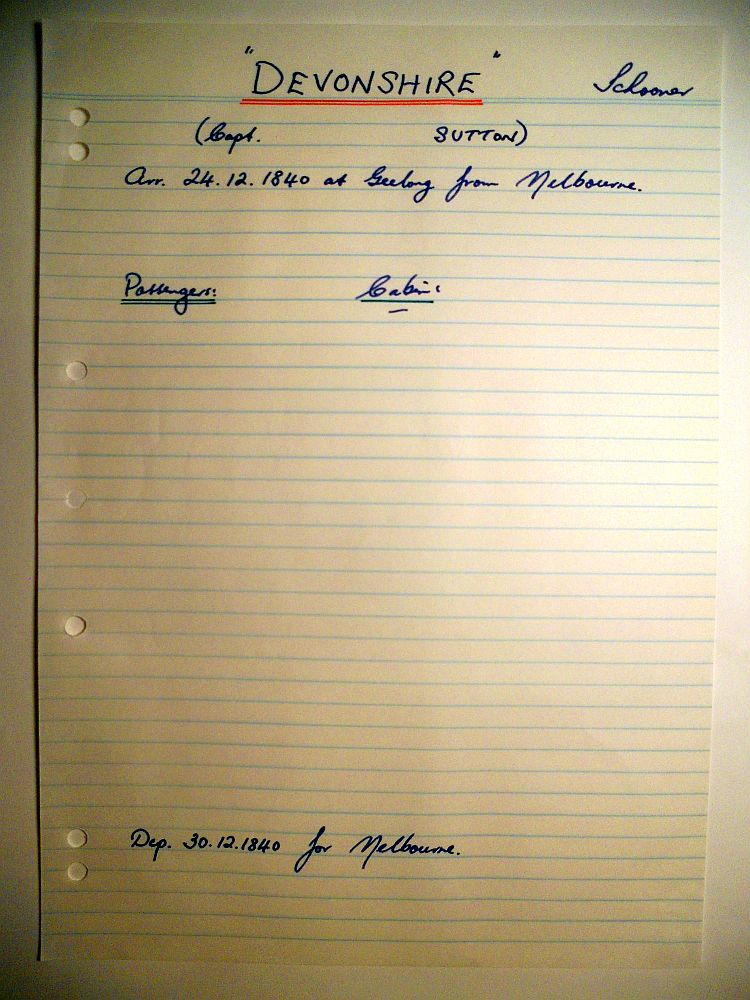 "DEVONSHIRE" Schooner
(Capt. SUTTON)
Arr. 24.12.1840 at Geelong from Melbourne.
Passengers: Cabin:
—
Dep. 30.12.1840 for Melbourne.